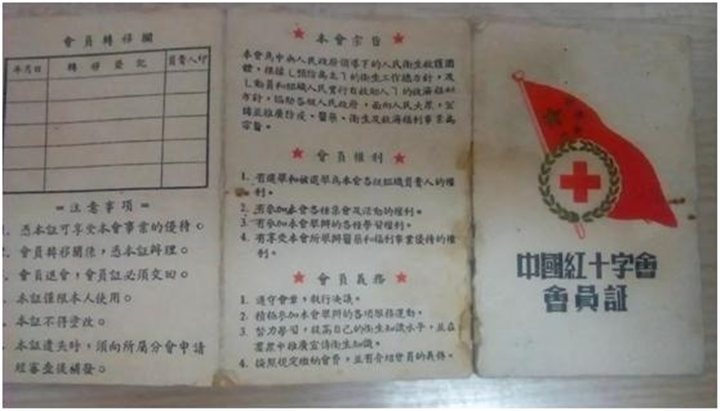 會員轉移欄
年月日 轉移登記 負責人印
＝注意事項＝
1. 憑本証可享受本會事業的優待。
會員轉移關係，憑本証辦理。
會員退會，會員証必須交回。
本証僅限本人使用。
本証不得塗改。
本証遺失時，須向所屬分會申請
經審查後補發。
★ 本會宗旨 ★
本會為中央人民政府領導下的人民衛生救護團
體，根據「預防為主」的衛生工作總方針，及
「動員和組織人民實行自救助人」的救濟福利
方針，協助各級人民政府，面向人民大眾，宣
傳並推廣防疫、醫藥、衛生及救濟福利事業為
宗旨。
★ 會員權利 ★
1. 有選舉和被選舉為本會各級組織負責人的權
利。
2. 有參加本會各種集會及活動的權利。
3. 有參加本會舉辦的各種學習權利。
4. 有享受本會所舉辦醫藥和福利事業優待的權
利。
★ 會員義務 ★
1. 遵守會章，執行決議。
2. 積極參加本會舉辦的各項服務運動。
3. 努力學習，提高自己的衛生知識水平，並在
羣眾中推廣宣傳衛生知識。
4. 按照規定繳納會費，並有介紹會員的義務。
中國紅十字會
會員証